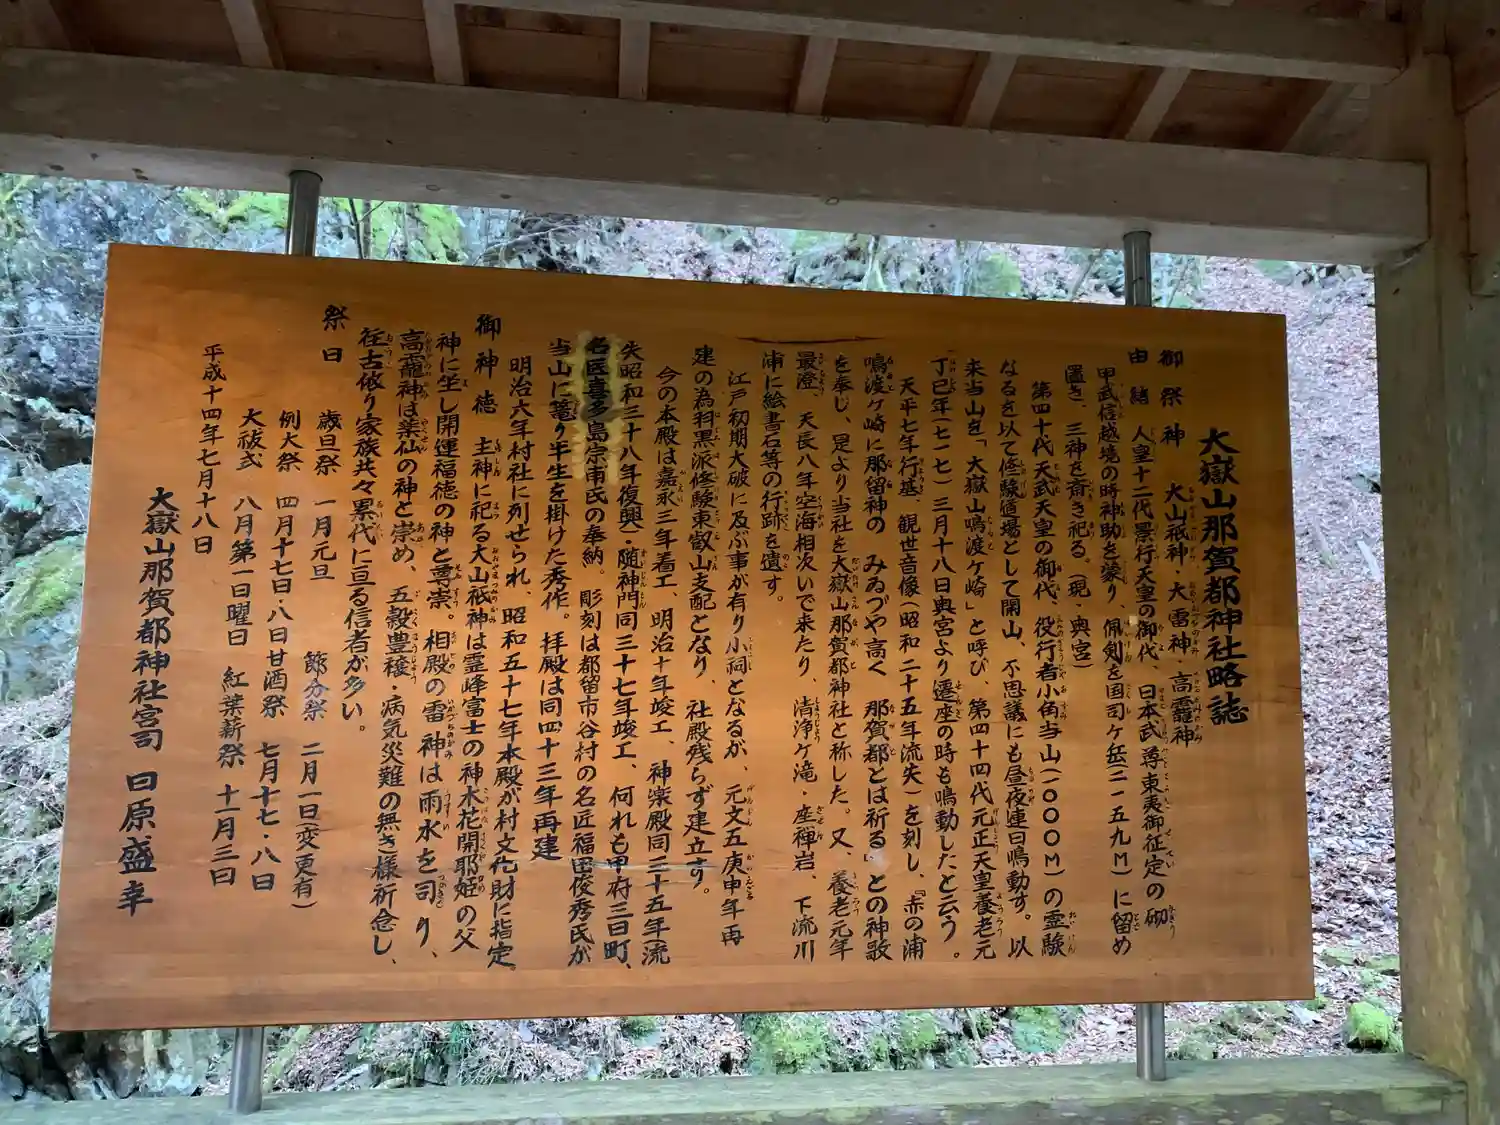 大嶽山那賀都神社略誌
御祭神　大山祇神・大雷神・高龗神
由緒　人皇十二代景行天皇の御代、日本武尊東夷御征定の砌
甲武信越境の時神助を蒙り、佩剣を国司ヶ岳(二一五九M)に留め
置き、三神を斎き祀る。(現・奥宮)
第四十代天武天皇の御代、役行者小角当山(一〇〇〇M)の霊験
なるを以て修験道場として開山、不思議にも昼夜連日鳴動す。以
来当山を「大嶽山鳴渡ヶ崎」と呼び、第四十四代元正天皇養老元
丁巳年(七一七)三月十八日奥宮より遷座の時も鳴動したと云う。
天平七年行基、観世音像(昭和二十五年流失)を刻し、『赤の浦
鳴渡ヶ崎に那留神の　みゐづや高く　那賀都とは祈る』との神歌
を奉じ、是より当社を大嶽山那賀都神社と称した。又、養老元年
最澄、天長八年空海相次いで来たり、清浄ヶ滝・座禅岩、下流川
浦に絵書石等の行跡を遺す。
江戸初期大破に及ぶ事が有り小祠となるが、元文五庚申年再
建の為羽黒派修験東叡山支配となり、社殿残らず建立す。
今の本殿は嘉永三年着工、明治十年竣工、神楽殿同三十五年流
失昭和三十八年復興・随神門同三十七年竣工、何れも甲府三日町、
名匠喜多島宗甫氏の奉納。彫刻は都留市谷村の名匠福田俊秀氏が
当山に篭り半生を掛けた秀作。拝殿は同四十三年再建
明治六年村社に列せられ、昭和五十七年本殿が村文化財に指定。
御神徳　主神に祀る大山祇神は霊峰富士の神木花開耶姫の父
神に坐し開運福徳の神と尊崇。相殿の雷神は雨水を司り、
高龗神は薬仙の神と崇め、五穀豊穣・病気災難の無き様祈念し、
往古依り家族共々累代に亘る信者が多い。
祭日　歳旦祭　一月元旦　節分祭　二月一日(変更有)
例大祭　四月十七日・八日甘酒祭　七月十七・八日
大祓式　八月第一日曜日　紅葉薪祭　十一月三日
平成十四年七月十八日
大嶽山那賀都神社宮司　日原盛幸